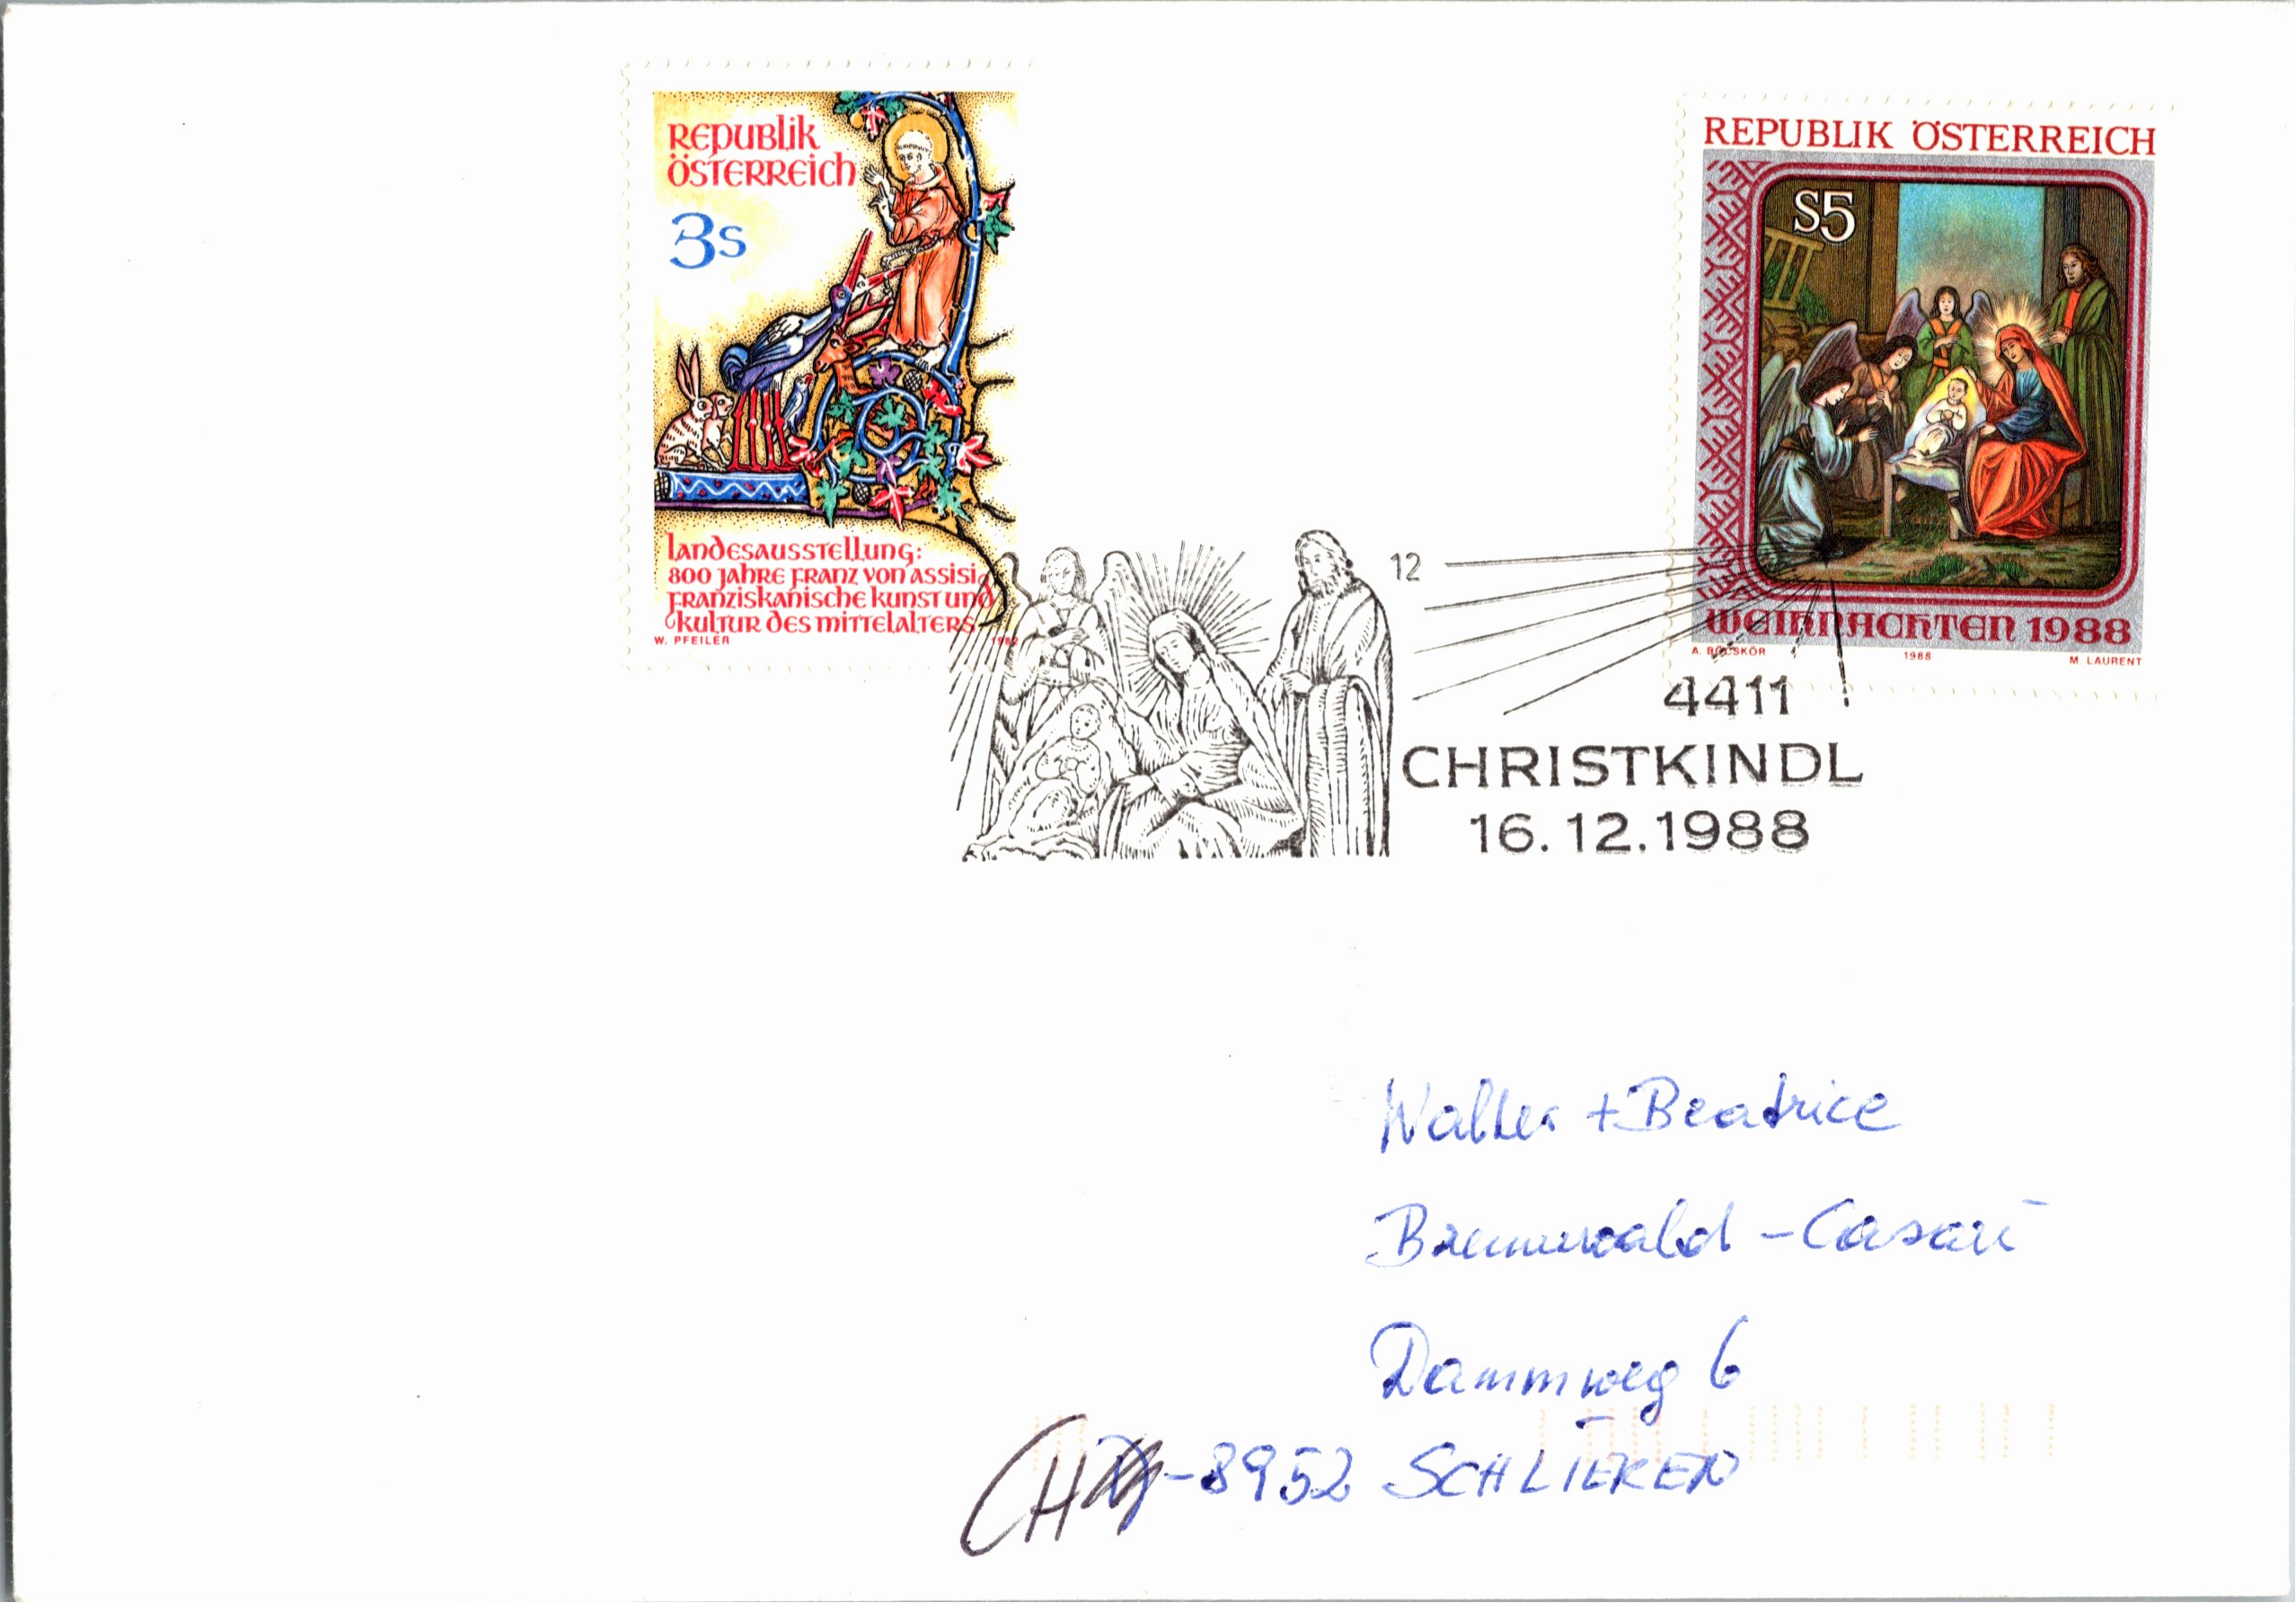 Republik
Österreich
3s
Landesausstellung:
800 Jahre Franz von Assisi
Franziskanische Kunst und
Kultur des Mittelalters
W. PFEILER 1982
REPUBLIK ÖSTERREICH
S5
WEIHNACHTEN 1988
A. BÖCSKÖR 1988 M. LAURENT
12
4411
CHRISTKINDL
16.12.1988
Walter + Beatrice
Brennwald - Casari
Dammweg 6
CH -8952 SCHLIEREN